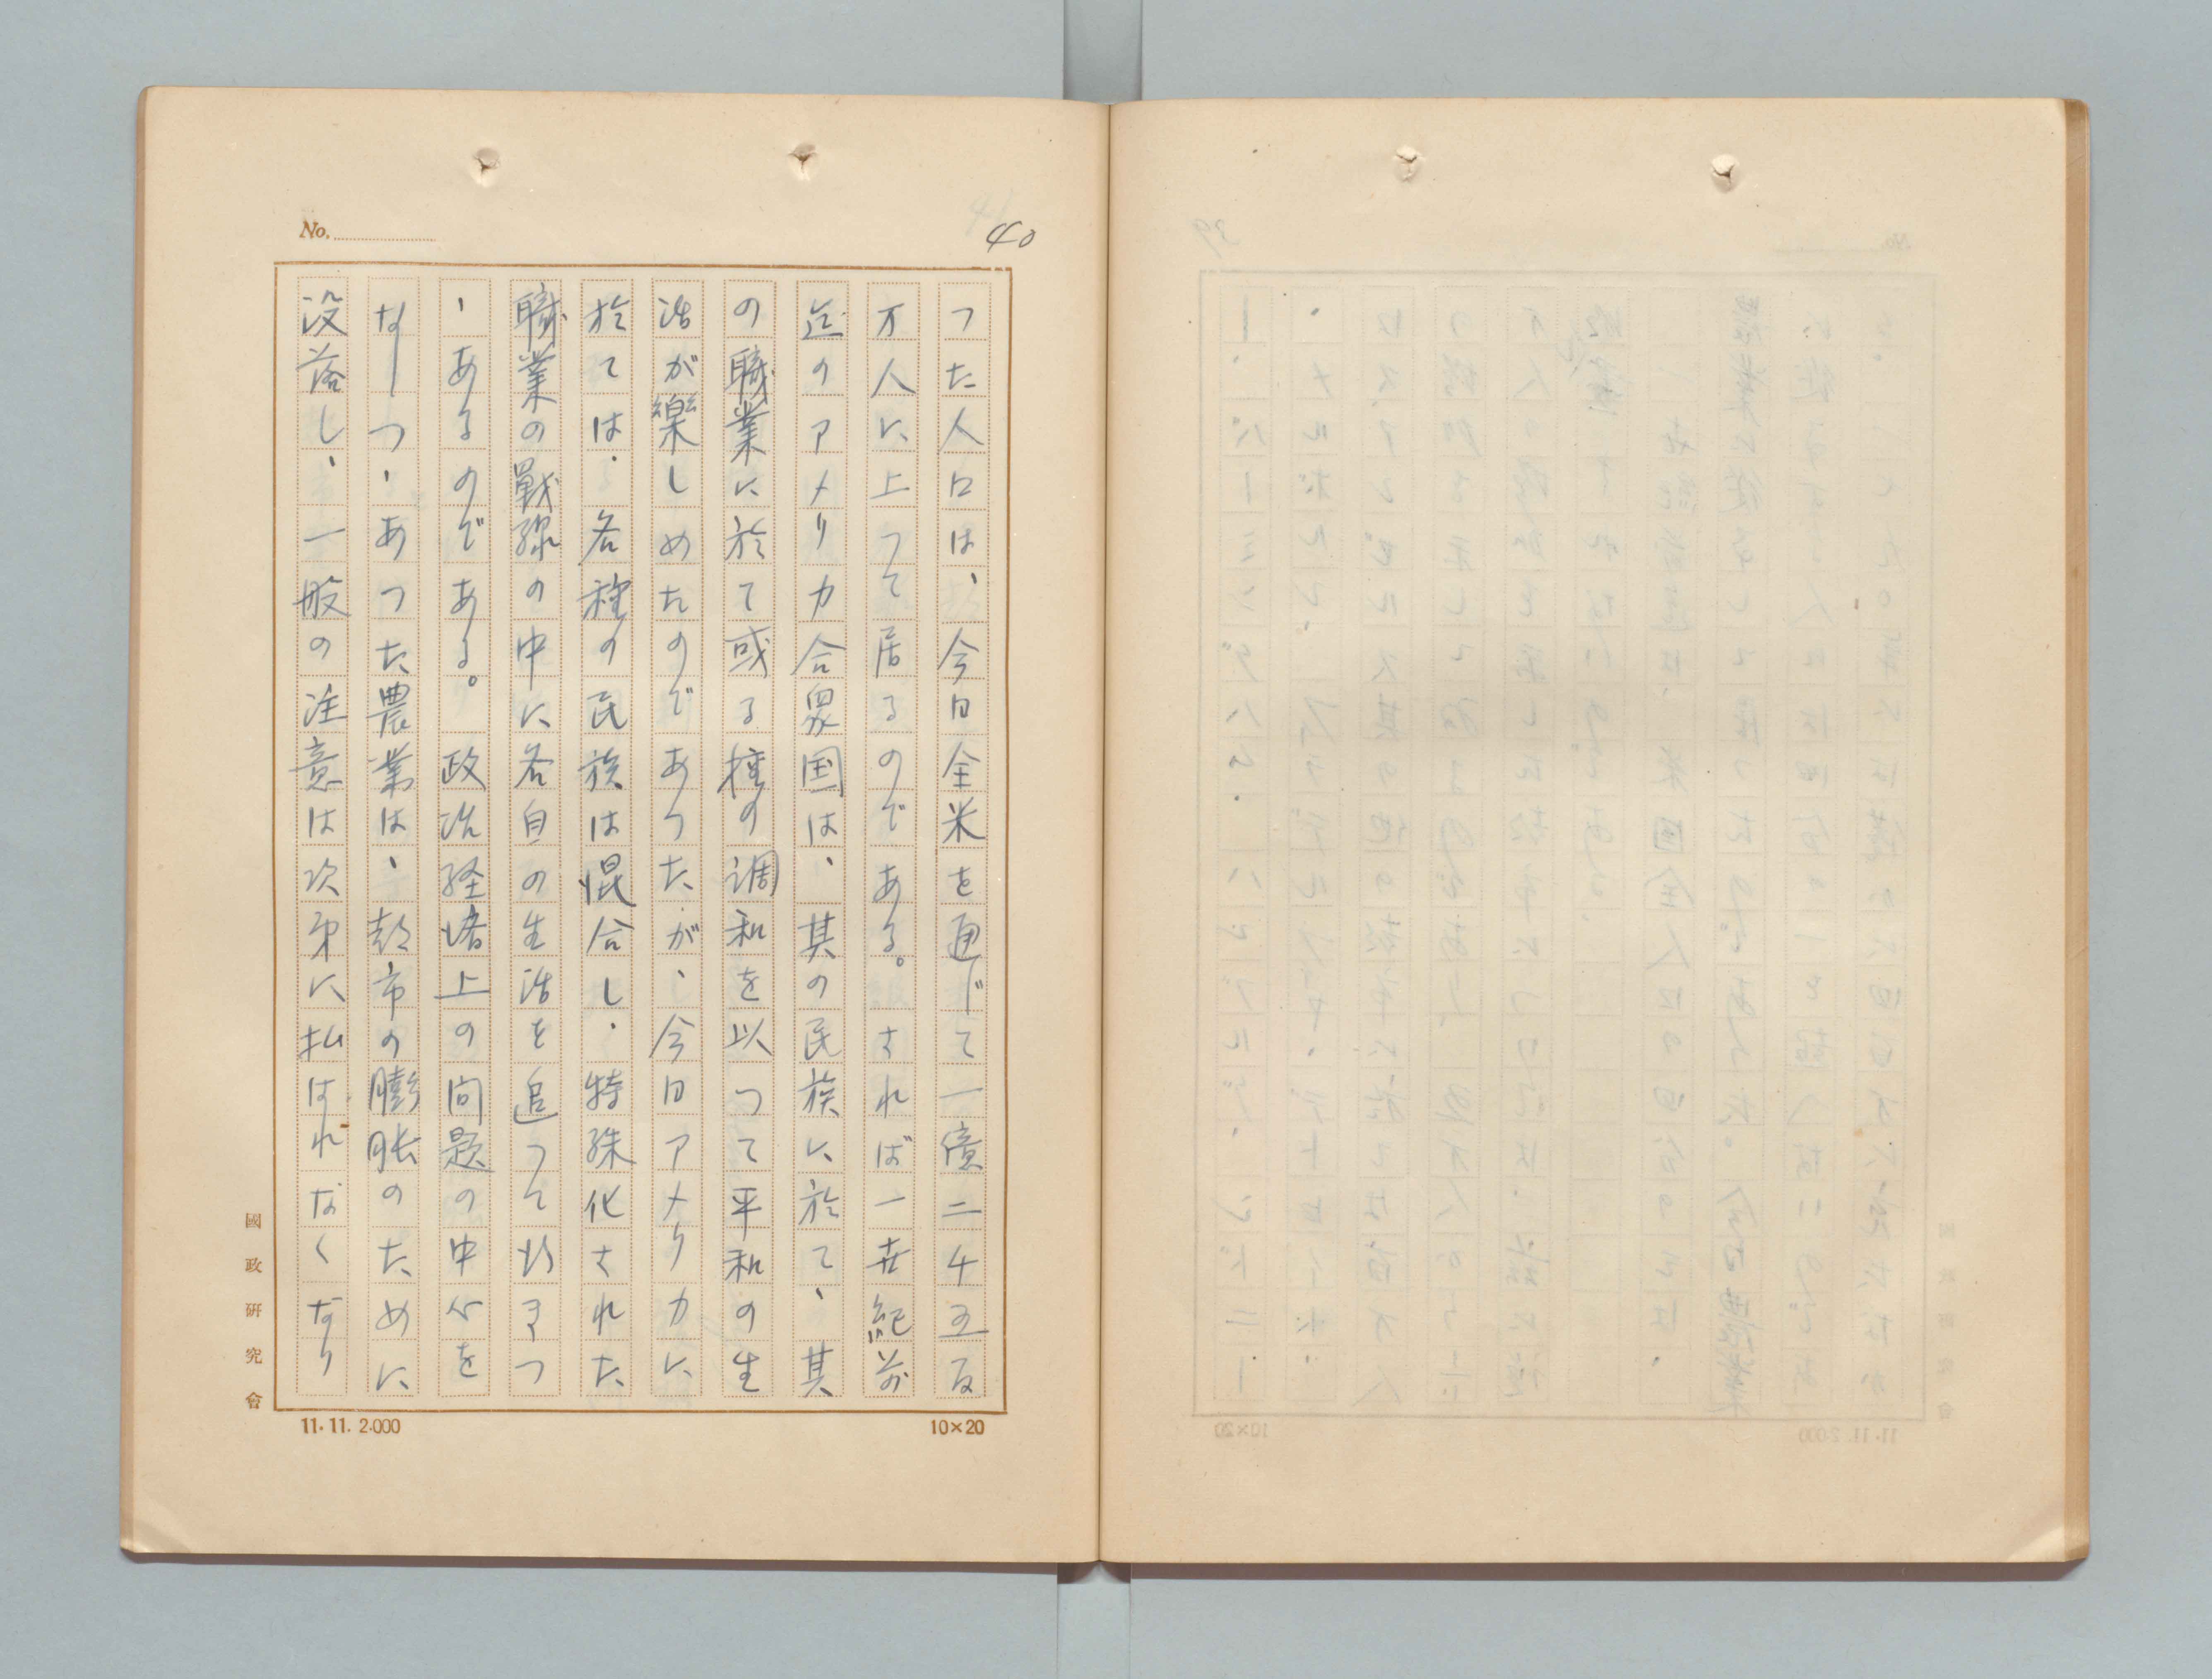 No.
40
つた人口は、今日全米を通じて一億二千五百
万人に上つて居るのである。されば一世紀前
迄のアメリカ合衆国は、其の民族に於て、其
の職業に於て或る種の調和を以つて平和の生
活が樂しめたのであつたが、今日アメリカに
於ては、各種の民族は混合し、特殊化された
職業の戰線の中に各自の生活を追つて行きつ
ゝあるのである。政治経済上の問題の中心を
なしつゝあつた農業は、都市の膨脹のために
没落し、一般の注意は次第に払はれなくなり
國政研究會
11.11.2.000
10×20